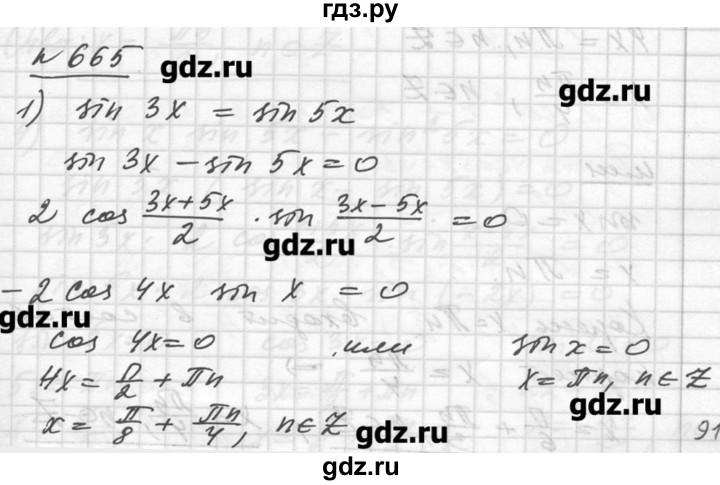 гдз.ру
№ 665
gdz.ru
gdz.ru
1) sin 3x = sin 5x
sin 3x − sin 5x = 0
2 cos (3x+5x)/2 · sin (3x−5x)/2 = 0
gdz.ru
−2 cos 4x sin x = 0
gdz.ru
cos 4x = 0 или sin x = 0
4x = π/2 + πn x = πn, n ∈ Z
gdz.ru
x = π/8 + πn/4, n ∈ Z
gdz.ru
91
gdz.ru